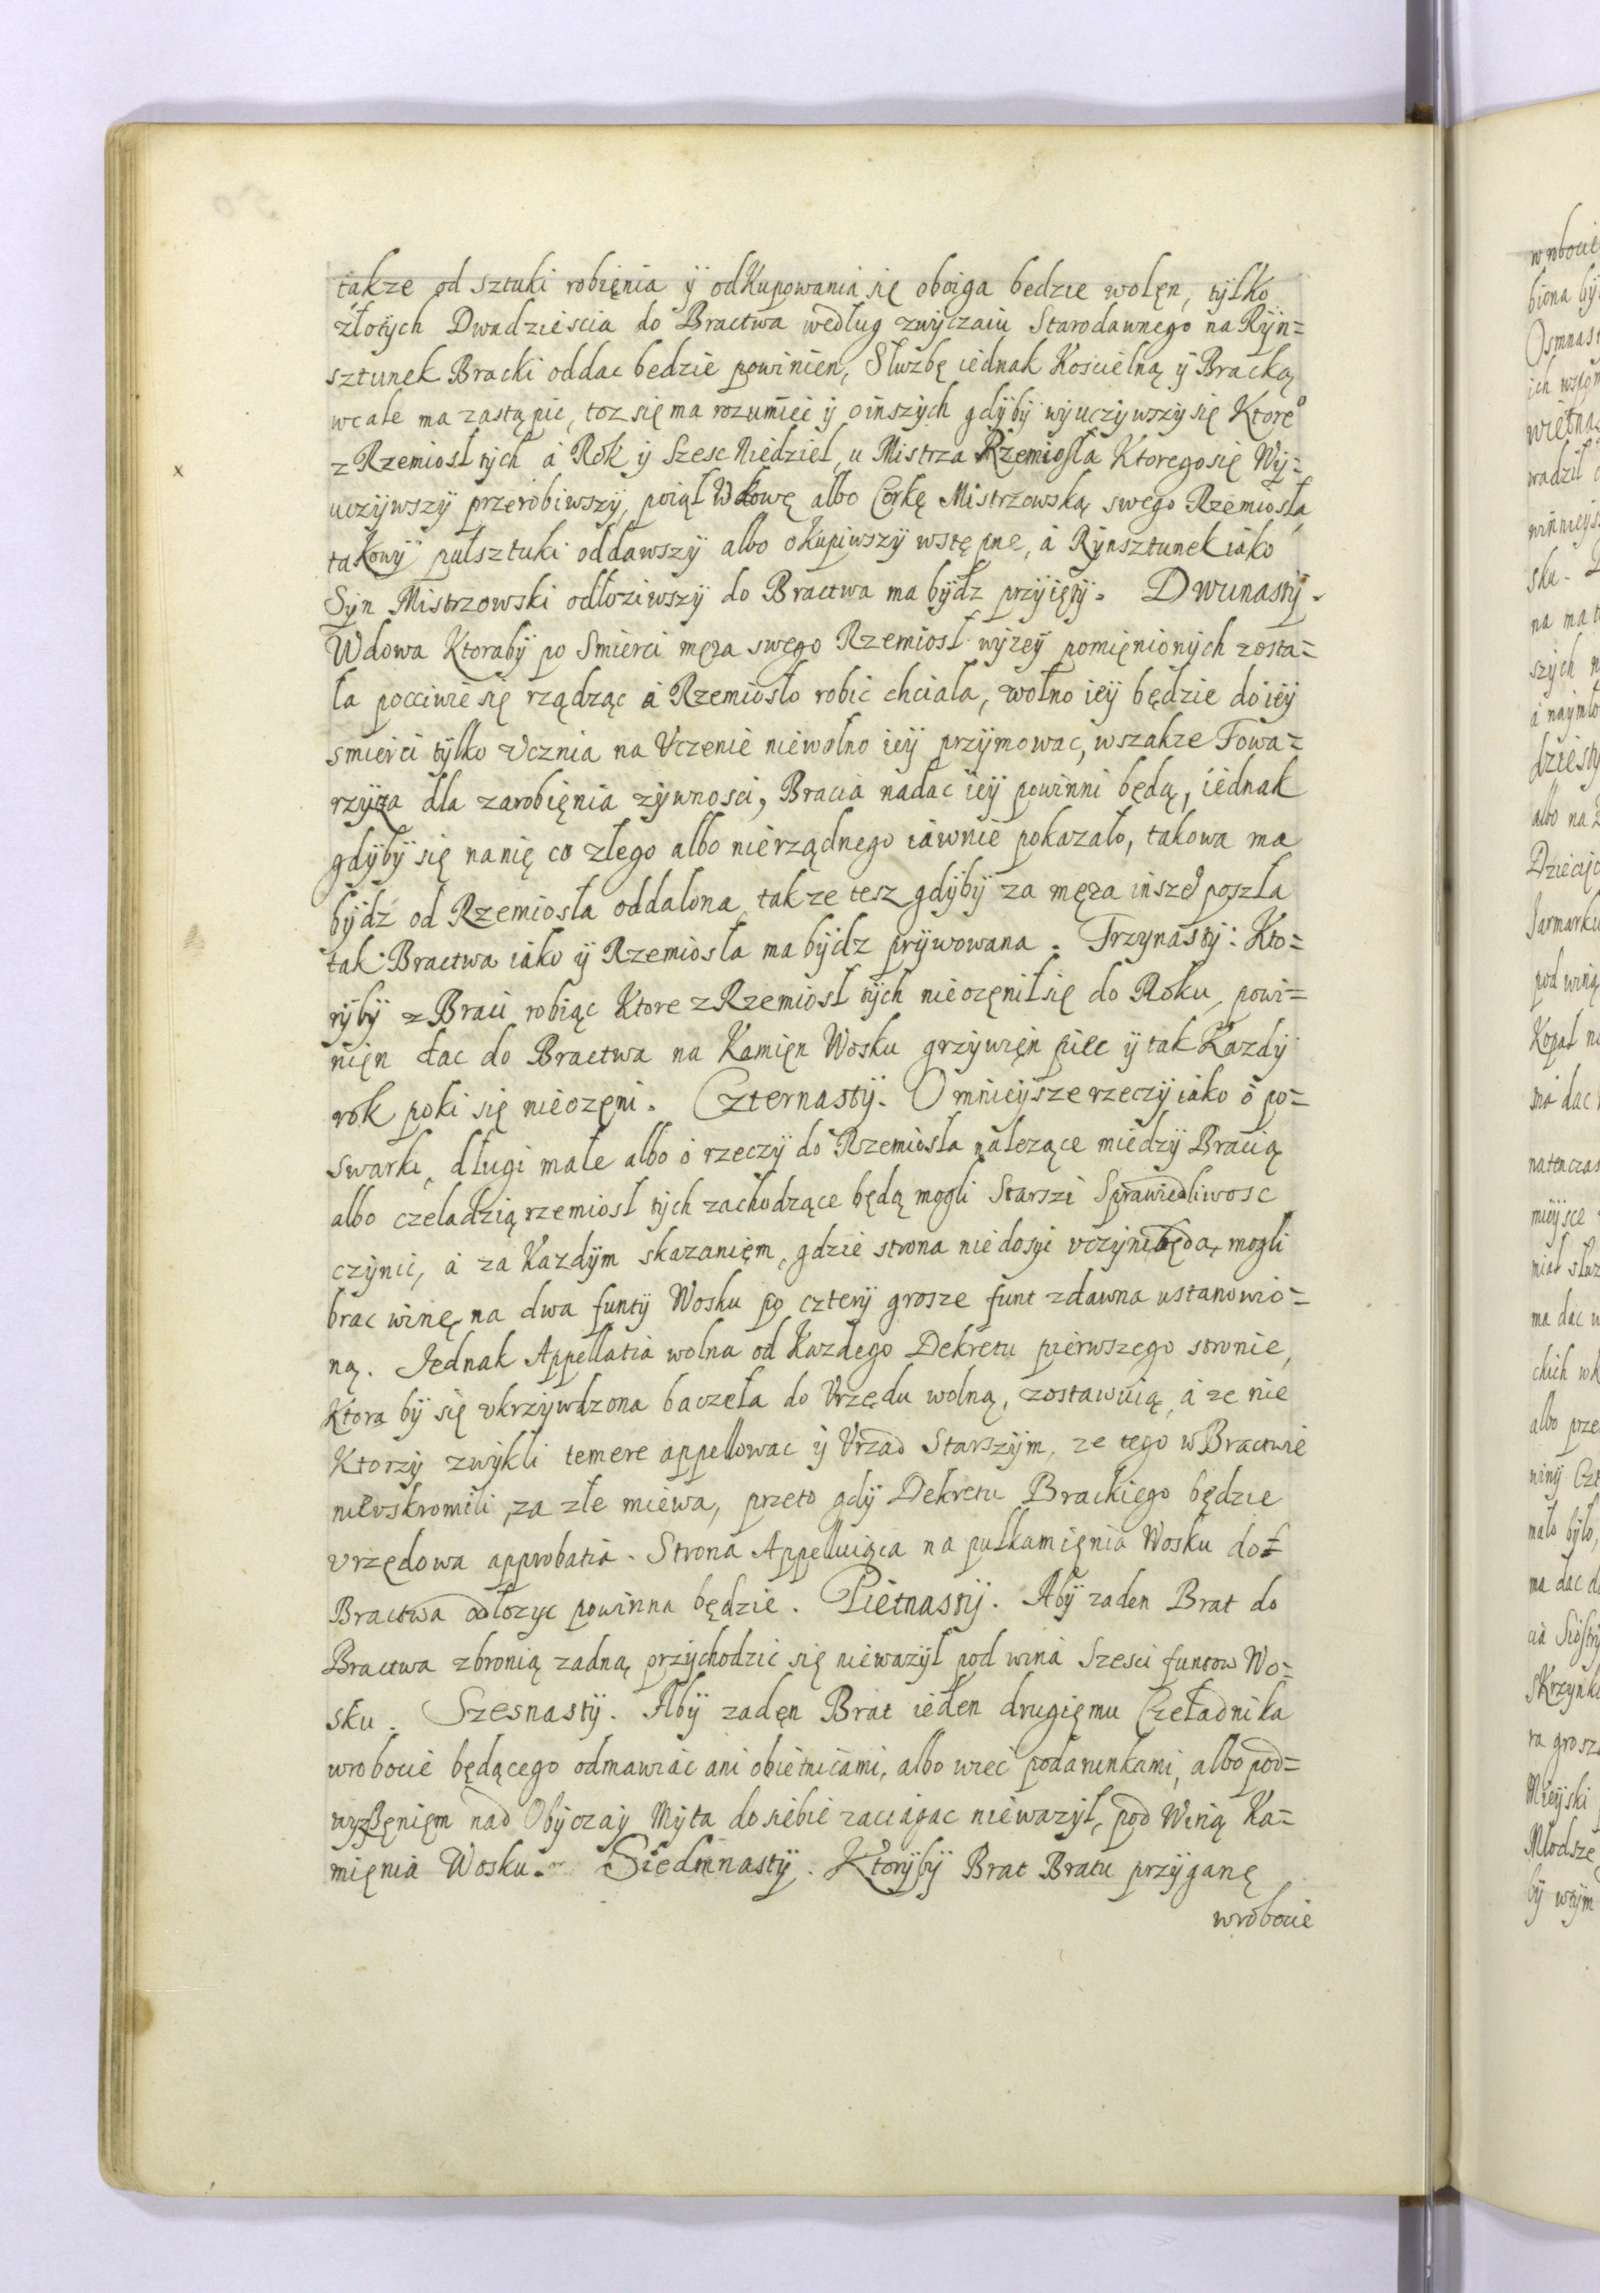 także od sztuki robięnia ÿ odkupowania się oboiga bedzie wolęn, tÿlko
złotÿch Dwadziescia do Bractwa według zwÿczaiu Starodawnego na Rÿn=
sztunek Bracki oddac bedzie powinien, Słuzbę iednak Koscielną ÿ Bracką
wcale ma zastąpic, toz się ma rozumiec ÿ oinszÿch gdÿbÿ wÿuczÿwszÿ się Ktore°
z Rzemiosł tÿch á Rok ÿ Szesc Niedziel, u Mistrza Rzemiosła Ktoregosię Wÿ=
uczÿwszÿ przerobiwszÿ, poiął Wdowę albo Corkę Mistrzowską swego Rzemiosła,
takowÿ pułsztuki oddawszÿ albo okupiwszÿ wstępne, á Rÿnsztunek iako
Sÿn Mistrzowski odłoziwszÿ do Bractwa ma bÿdz przÿięty. Dwunastÿ.
Wdowa Ktorabÿ po Smierci męza swego Rzemiosł wÿzeÿ pomięnionÿch zosta=
ła poczciwie się rządząc á Rzemiosło robic chciała, wolno ieÿ będzie do ieÿ
smierci tÿlko Vcznia na Vczenie niewolno ieÿ przÿjmowac, wszakze Towa=
rzÿsza dla zarobięnia zÿwnosci, Bracia nadac ieÿ powinni będą, iednak
gdÿbÿ się nanię co złego albo nierządnego iawnie pokazało, takowa ma
bÿdz od Rzemiosła oddalona, takze tesz gdÿbÿ za męza insze° poszła
tak Bractwa iako ÿ Rzemiosła ma bÿdz prÿwowana. Trzynastÿ: Kto=
rÿbÿ z Braci robiąc Ktore z Rzemiosł tÿch nieozęnił się do Roku, powi=
nięn dac do Bractwa na Kamięn Wosku grzÿwięn piec ÿ tak Kazdÿ
rok poki się nieozęni. Czternastÿ. O mnieÿsze rzeczÿ iako o po=
swarki, długi małe albo o rzeczÿ do Rzemiosła nalezące miedzÿ Bracią
albo czeladzią rzemiosł tÿch zachodzące będą mogli Starszi Sprawiedliwosc
czÿnic, á za Kazdÿm skazanięm, gdzie strona niedosÿc vczÿni będą mogli
brac winę na dwa funtÿ Wosku po czterÿ grosze funt zdawna ustanowio=
ną. Jednak Appellatia wolna od Kazdego Dekretu pierwszego stronie,
Ktora bÿ się vkrzÿwdzona baczeła do Vrzędu wolną, zostawuią, á ze nie
Ktorzÿ zwÿkli temere appellowac ÿ Vrzad Starszÿm, ze tego w Bractwie
nievskromili, za złe miewa, przeto gdÿ Dekretu Brackiego będzie
vrzędowa approbatia. Strona Appelluiąca na pułkamięnia Wosku do=
Bractwa odłozyc powinna będzie. Pietnastÿ. Abÿ zaden Brat do
Bractwa zbronią zadną przÿchodzic się niewazÿł pod wina Szesci funtow Wo=
sku. Szesnastÿ. Abÿ zadęn Brat ieden drugięmu Czeladnika
wrobocie będącego odmawiac ani obietnicami, albo wiec podarunkami, albo pod=
wyzszęnięm nad Obÿczaÿ Mÿta do siebie zaciągac niewazÿł, pod Winą Ka=
mięnia Wosku. Siedmnastÿ. Ktorÿbÿ Brat Bratu przÿganę
wrobocie